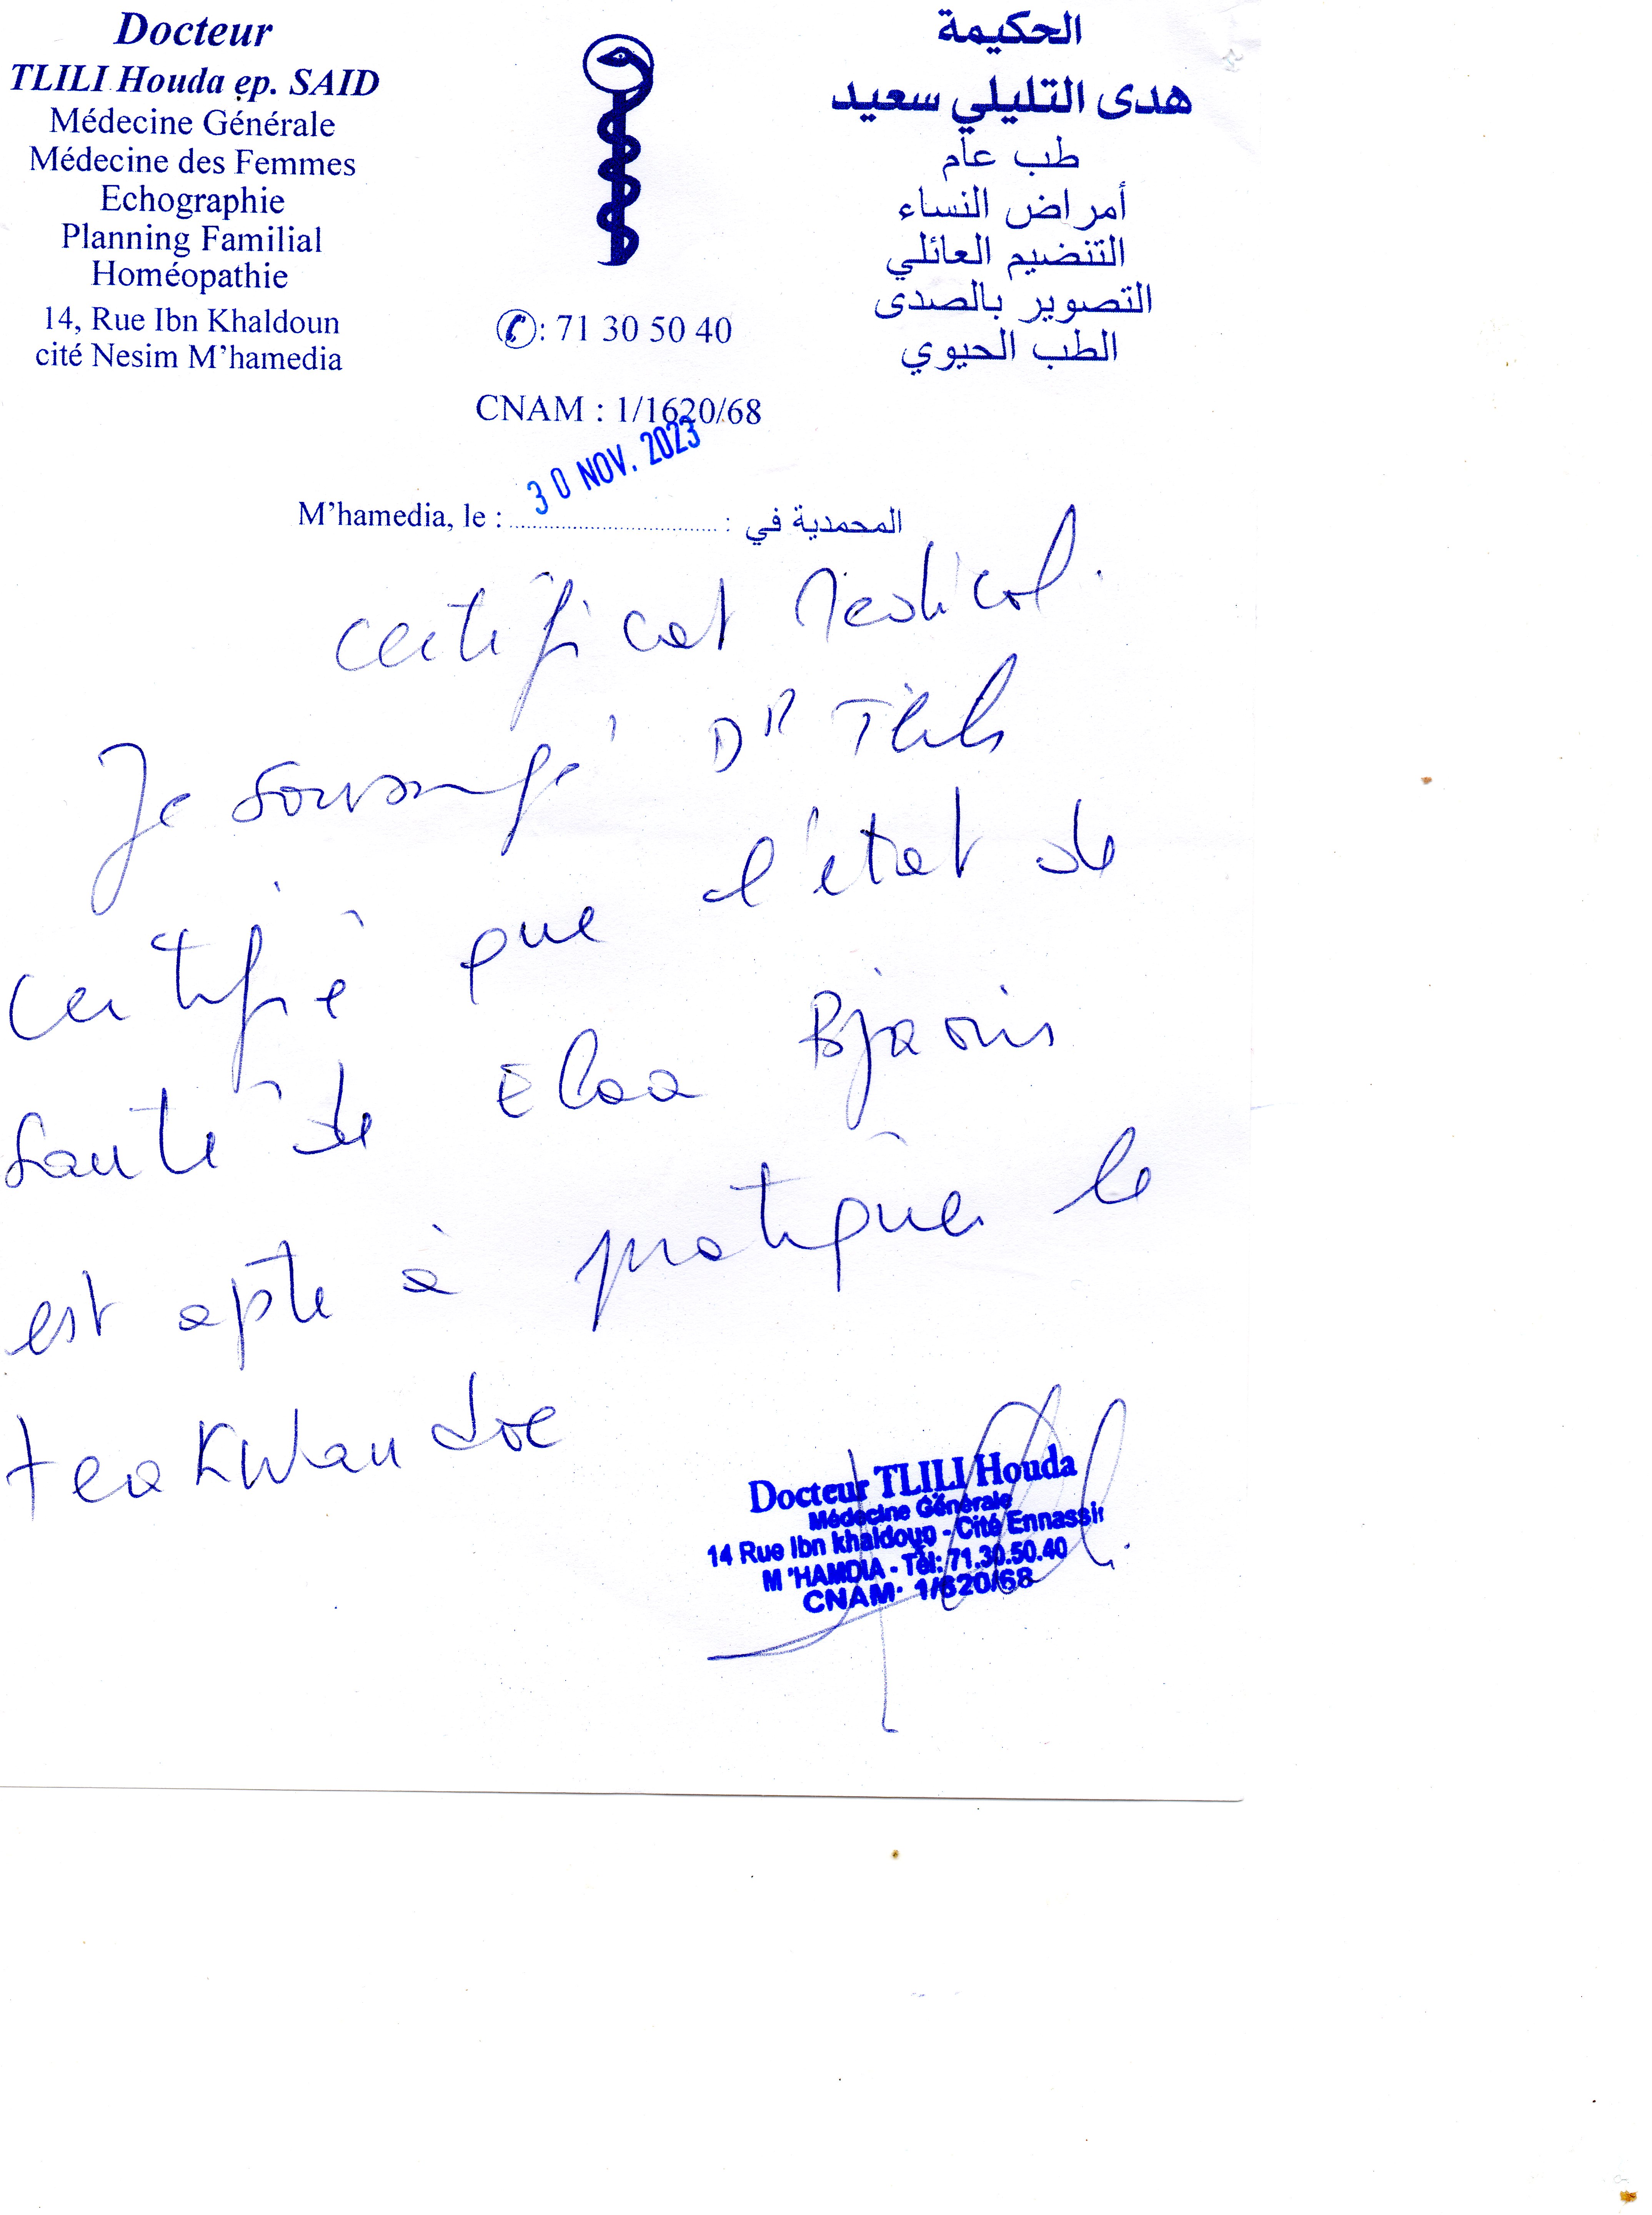 Docteur
TLILI Houda ep. SAID
Médecine Générale
Médecine des Femmes
Echographie
Planning Familial
Homéopathie
14, Rue Ibn Khaldoun
cité Nesim M'hamedia
الحكيمة
هدى التليلي سعيد
طب عام
أمراض النساء
التنضيم العائلي
التصوير بالصدى
الطب الحيوي
✆: 71 30 50 40
CNAM : 1/1620/68
30 NOV. 2023
M'hamedia, le : ........................ : المحمدية في
certificat Medical.
Je soussigné Dr Tlili
certifie que l'état de
santé de Elaa
est apte à pratiquer le
teakwandoe
Docteur TLILI Houda
Médecine Générale
14 Rue Ibn khaldoun - Cité Ennassir
M'HAMDIA - Tél: 71.30.50.40
CNAM: 1/620/68